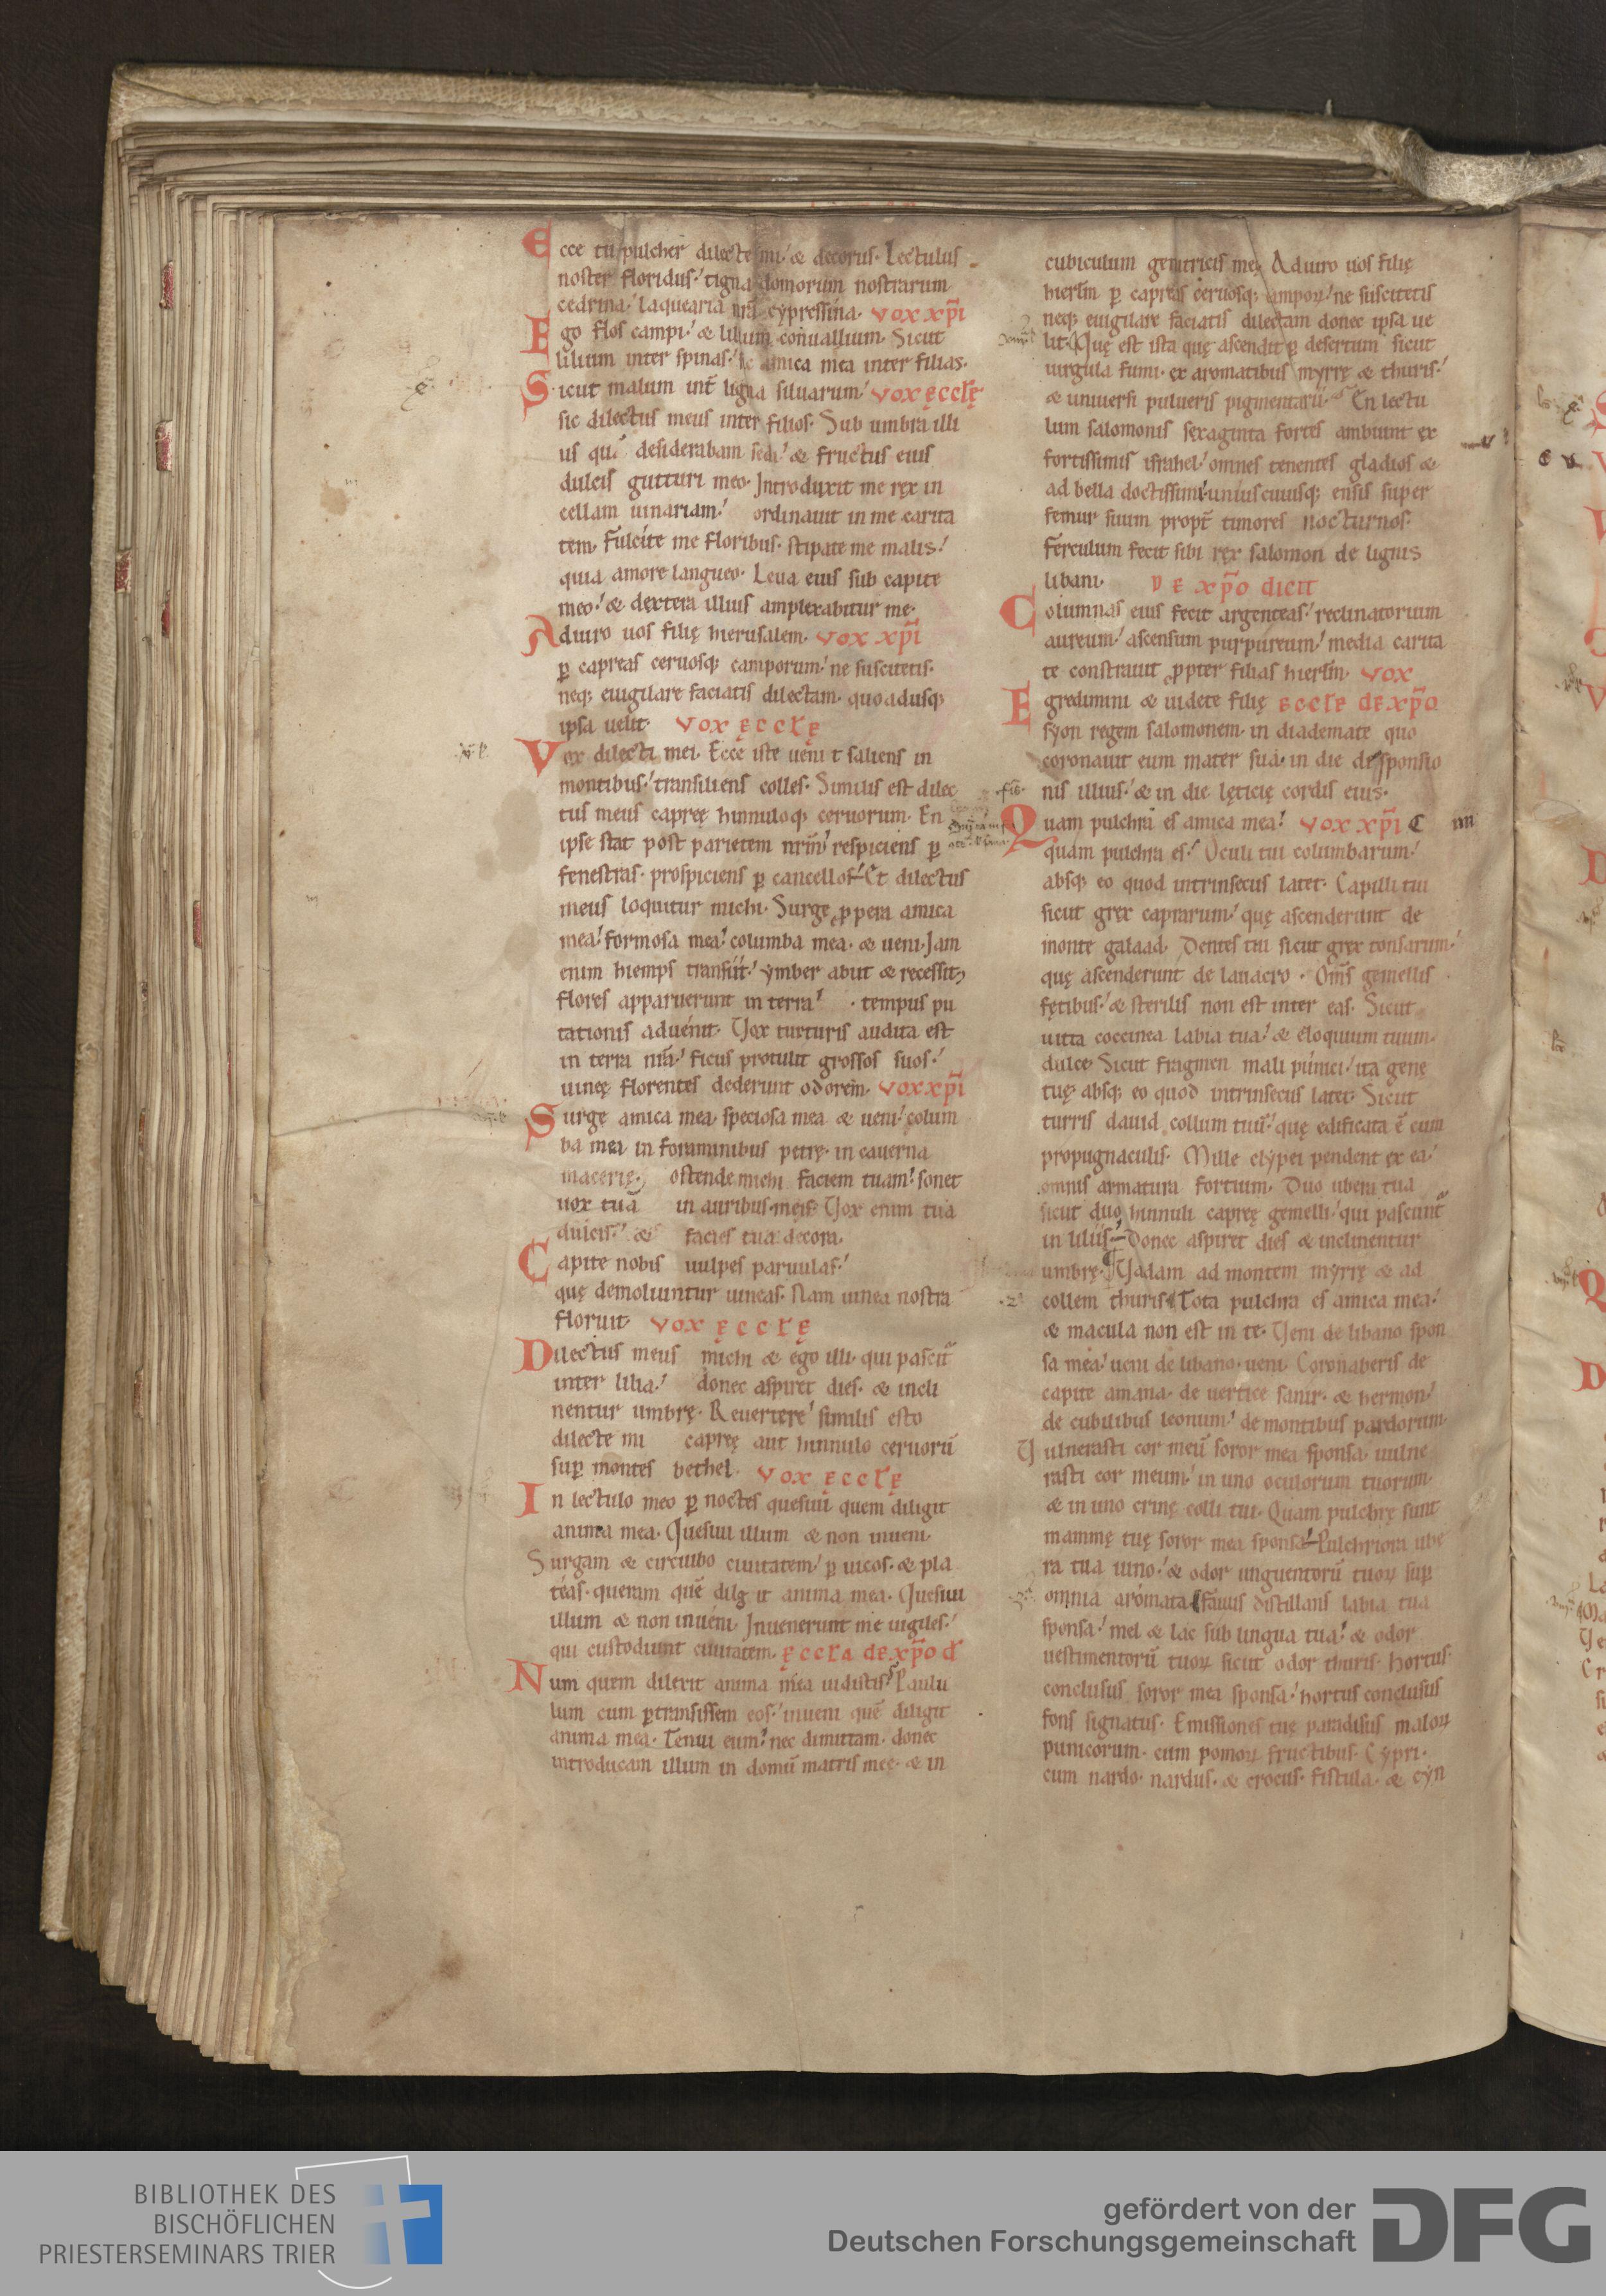 Ecce tu pulcher dilecte mi / & decorus. Lectulus
noster floridus / tigna domorum nostrarum
cedrina / laquearia nr̄a cypressina. vox xp̄i
Ego flos campi / & lilium conuallium. Sicut
lilium inter spinas / sic amica mea inter filias.
Sicut malum int̄ ligna siluarum / vox ęccl̄ę
sic dilectus meus inter filios. Sub umbra illi
us quē desiderabam sedi / & fructus eius
dulcis gutturi meo. Introduxit me rex in
cellam uinariam / ordinauit in me carita
tem. Fulcite me floribus. stipate me malis /
quia amore langueo. Leua eius sub capite
meo / & dextera illius amplexabitur me.
Adiuro uos filię hierusalem. vox xp̄i
ꝑ capreas ceruosq; camporum / ne suscitetis.
neq; euigilare faciatis dilectam. quoadusq;
ipsa uelit. vox ęccl̄ę
Vox dilecti mei. Ecce iste uenit saliens in
montibus / transiliens colles. Similis est dilec
tus meus capreę hinnuloq; ceruorum. En
ipse stat post parietem nr̄m / respiciens ꝑ
fenestras. prospiciens ꝑ cancellos. Et dilectus
meus loquitur michi. Surge ꝓpera amica
mea / formosa mea / columba mea. & ueni. Jam
enim hiemps transiit / ymber abiit & recessit.
flores apparuerunt in terra / tempus pu
tationis aduenit. Vox turturis audita est
in terra nr̄a / ficus protulit grossos suos /
uineę florentes dederunt odorem. vox xp̄i
Surge amica mea speciosa mea & ueni / colum
ba mea in foraminibus petrę. in cauerna
macerię. ostende michi faciem tuam / sonet
uox tua in auribus meis. Vox enim tua
dulcis / & facies tua decora.
Capite nobis uulpes paruulas /
quę demoliuntur uineas. Nam uinea nostra
floruit. vox ęccl̄ę
Dilectus meus michi & ego illi. qui pascit᷑
inter lilia / donec aspiret dies. & incli
nentur umbrę. Reuertere / similis esto
dilecte mi capreę aut hinnulo ceruorū
suꝑ montes bethel. vox ęccl̄ę
In lectulo meo ꝑ noctes quesiui quem diligit
anima mea. Quesiui illum & non inueni.
Surgam & circuibo ciuitatem / ꝑ uicos. & pla
teas. queram quē diligit anima mea. Quesiui
illum & non inueni. Inuenerunt me uigiles /
qui custodiunt ciuitatem. ęccl̄a de xp̄o d̄
Num quem dilexit anima mea uidistis? Paulu
lum cum ꝑtransissem eos / inueni quē diligit
anima mea. Tenui eum / nec dimittam. donec
introducam illum in domū matris meę. & in
cubiculum genitricis meę. Adiuro uos filię
hierl̄m ꝑ capreas ceruosq; campoꝝ / ne suscitetis
neq; euigilare faciatis dilectam donec ipsa ue
lit. Quę est ista quę ascendit ꝑ desertum sicut
uirgula fumi. ex aromatibus myrrę & thuris /
& uniuersi pulueris pigmentarii. En lectu
lum salomonis sexaginta fortes ambiunt ex
fortissimis israhel / omnes tenentes gladios &
ad bella doctissimi. uniuscuiusq; ensis super
femur suum propt̄ timores nocturnos.
Ferculum fecit sibi rex salomon de lignis
libani. DE xp̄o dicit
Columnas eius fecit argenteas / reclinatorium
aureum / ascensum purpureum / media carita
te constrauit ꝓpter filias hierl̄m. vox
Egredimini & uidete filię eccl̄e de xp̄o
syon regem salomonem. in diademate quo
coronauit eum mater sua. in die desponsio
nis illius / & in die lęticię cordis eius.
Quam pulchra es amica mea / vox xp̄i C IIII
quam pulchra es / Oculi tui columbarum /
absq; eo quod intrinsecus latet. Capilli tui
sicut grex caprarum / quę ascenderunt de
monte galaad. Dentes tui sicut grex tonsarum /
quę ascenderunt de lauacro. Om̄s gemellis
fętibus / & sterilis non est inter eas. Sicut
uitta coccinea labia tua / & eloquium tuum
dulce. Sicut fragmen mali punici / ita genę
tuę. absq; eo quod intrinsecus latet. Sicut
turris dauid collum tuū / quę edificata ē cum
propugnaculis. Mille clypei pendent ex ea /
omnis armatura fortium. Duo ubera tua
sicut duo hinnuli capreę gemelli / qui pascunt᷑
in liliis. Donec aspiret dies & inclinentur
umbrę. Vadam ad montem myrrę & ad
collem thuris. Tota pulchra es amica mea /
& macula non est in te. Veni de libano spon
sa mea / ueni de libano. ueni. Coronaberis de
capite amana. de uertice sanir. & hermon /
de cubilibus leonum / de montibus pardorum.
Vulnerasti cor meū soror mea sponsa. uulne
rasti cor meum / in uno oculorum tuorum.
& in uno crine colli tui. Quam pulchrę sunt
mammę tuę soror mea sponsa. Pulchriora ube
ra tua uino / & odor unguentorū tuoꝝ suꝑ
omnia aromata. fauus distillans labia tua
sponsa / mel & lac sub lingua tua / & odor
uestimentorū tuoꝝ sicut odor thuris. hortus
conclusus soror mea sponsa / hortus conclusus
fons signatus. Emissiones tuę paradisus maloꝝ
punicorum. cum pomoꝝ fructibus. Cypri.
cum nardo. nardus. & crocus. fistula. & cyn
BIBLIOTHEK DES
BISCHÖFLICHEN
PRIESTERSEMINARS TRIER
gefördert von der
Deutschen Forschungsgemeinschaft
DFG